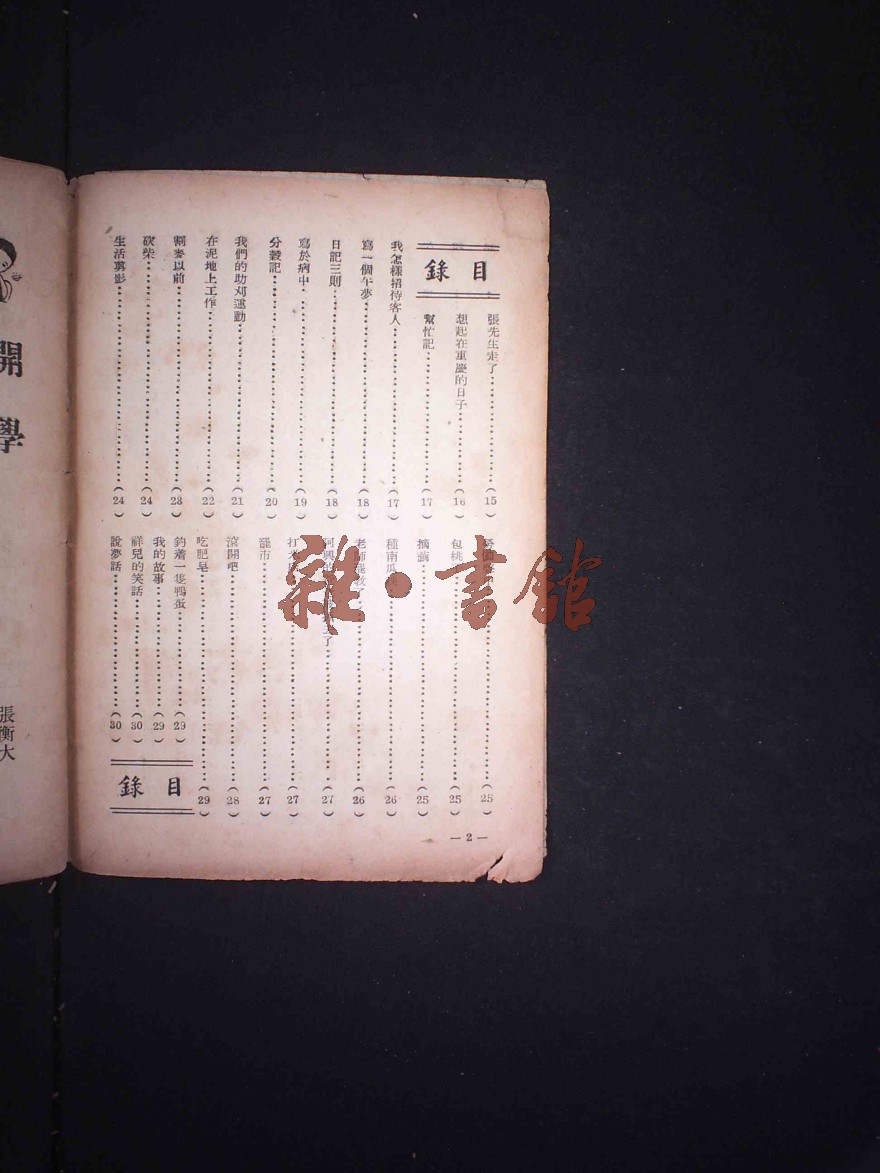 目錄
張先生走了……(15)
想起在重慶的日子……(16)
幫忙記……(17)
我怎樣招待客人……(17)
寫一個午夢……(18)
日記三則……(18)
寫於病中……(19)
分穀記……(20)
我們的助刈運動……(21)
在泥地上工作……(22)
割麥以前……(23)
砍柴……(24)
生活剪影……(24)
……(25)
包桃……(25)
摘繭……(25)
種南瓜……(26)
老師……(26)
阿興……了……(27)
打……(27)
罷市……(27)
滾開吧……(28)
吃肥皂……(29)
釣着一隻鴨蛋……(29)
我的故事……(29)
祥兒的笑話……(30)
說夢話……(30)
目錄
—2—
開學
張衡大
雜·書館